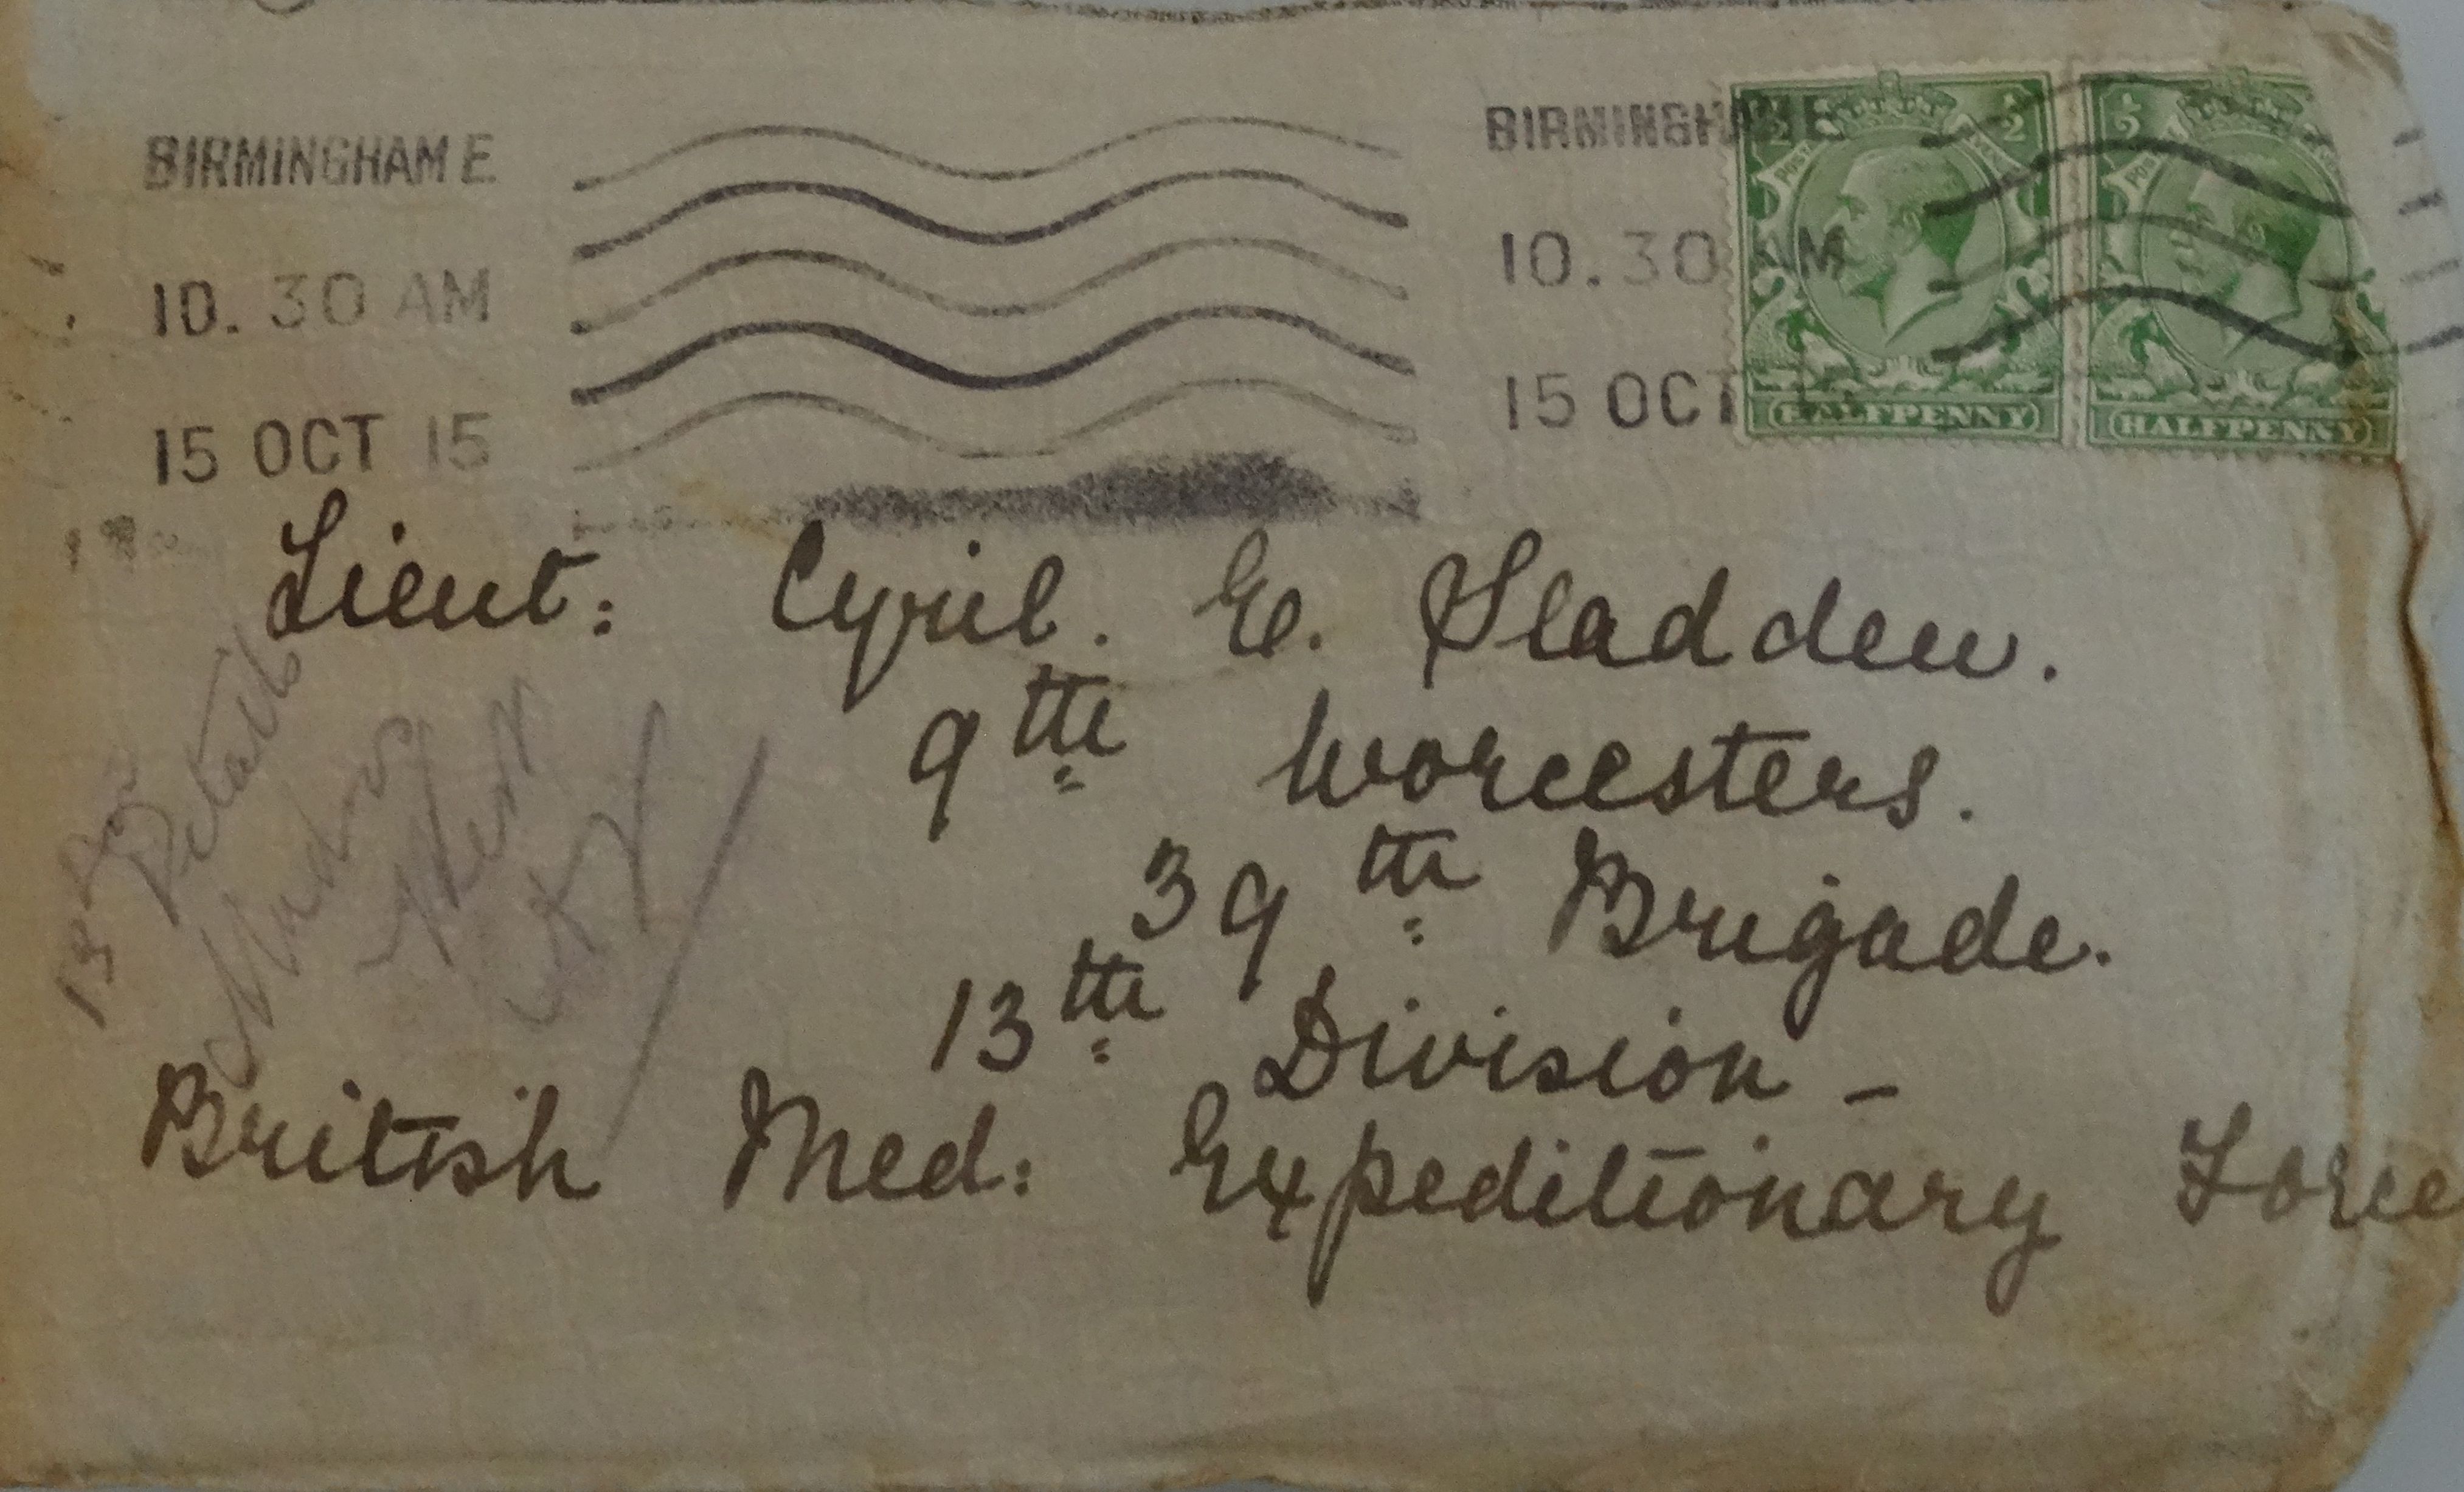 BIRMINGHAM E
10.30 AM
15 OCT 15
BIRMINGHAM E
10.30 AM
15 OCT
HALFPENNY
HALFPENNY
Lieut: Cyril. E. Sladden.
9th Worcesters.
39th Brigade.
13th Division -
British Med: Expeditionary Force
13
Details
Mudros